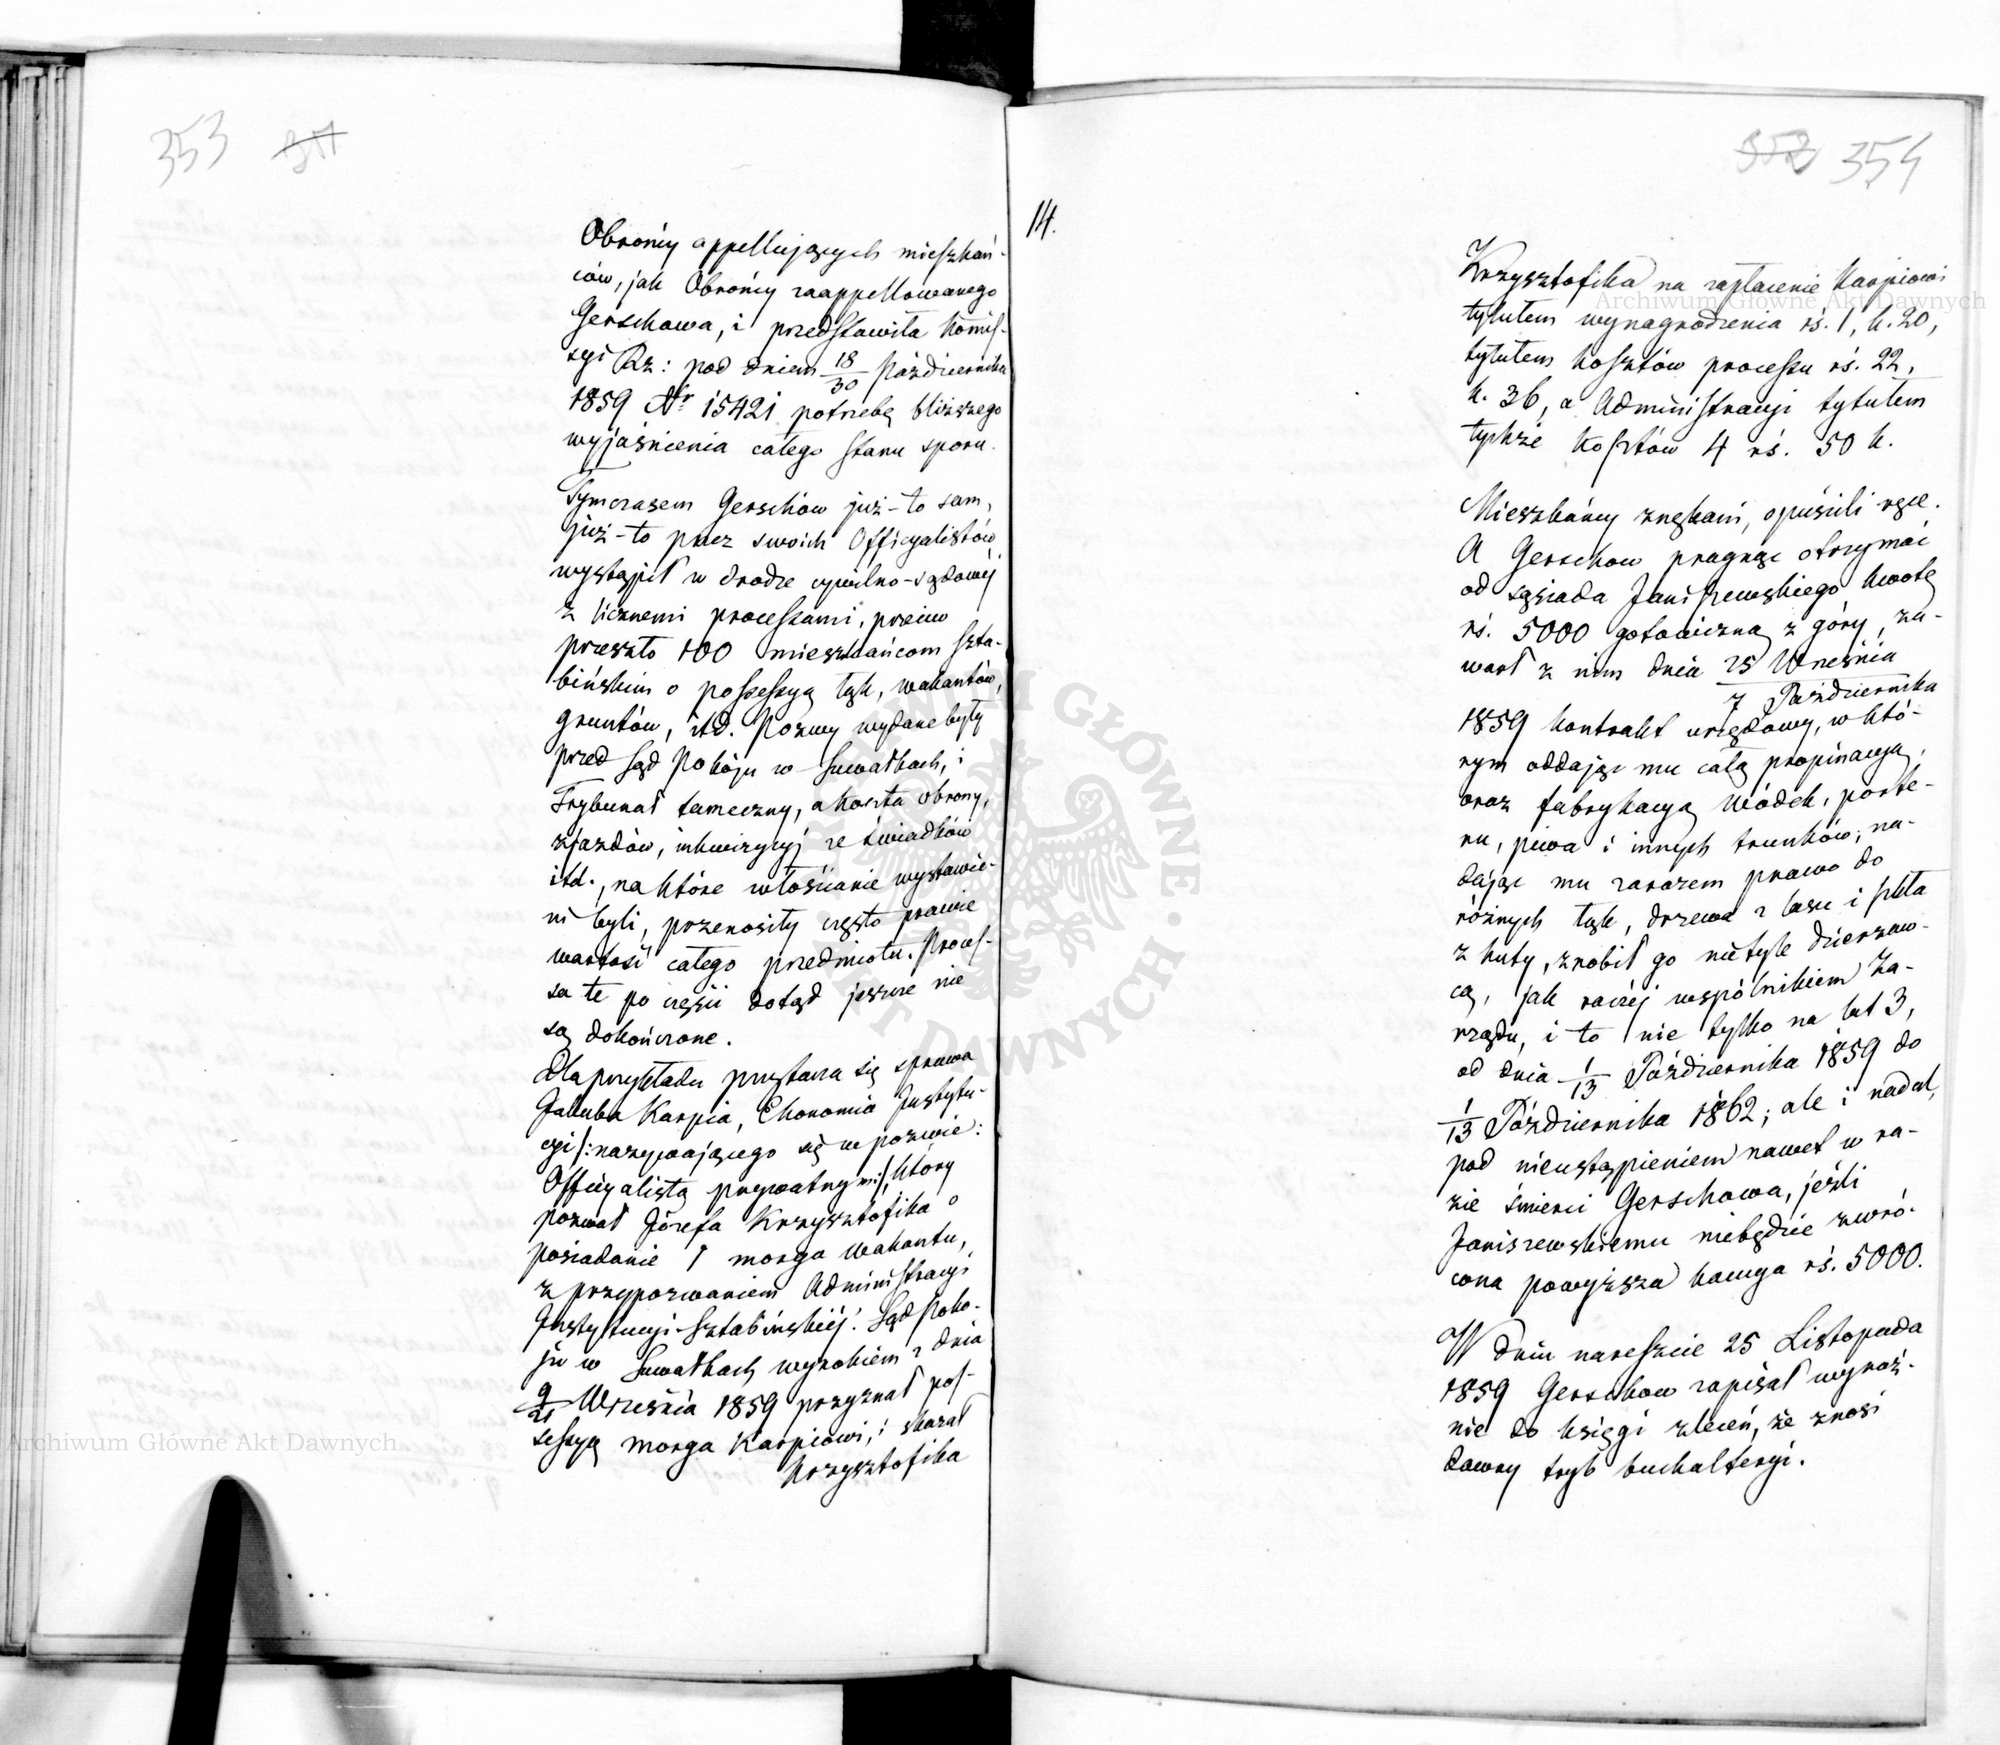 353
Obrońcy appellujących mieszkań-
ców, jak Obrońcy zaappellowanego
Gerschowa, i przedstawiła Kommis-
syi Rz: pod dniem 18/30 Października
1859 Nr 15421 potrzebę bliższego
wyjaśnienia całego stanu sporu.
Tymczasem Gerschow już-to sam,
już-to przez swoich Officyalistów
wystąpił w drodze cywilno-sądowéj
z licznemi processami, przeciw
przeszło 100 mieszkańcom Szta-
bińskim o possessyą łąk, wakantów,
gruntów, itd. Pozwy wydane były
przed Sąd Pokoju w Suwałkach, i
Trybunał tameczny, a koszta obrony,
zjazdów, inkwizycyj ze świadków
itd., na które włościanie wystawie-
ni byli, przenosiły często prawie
wartość całego przedmiotu. Proces-
sa te po części dotąd jeszcze nie
są dokończone.
Dla przykładu przytacza się sprawa
Jakuba Karpia, Ekonoma Instytu-
cyi /:nazywającego się w pozwie:
Officyalistą prywatnym:/, który
pozwał Józefa Krzysztofika o
posiadanie 1 morga wakantu,
z przypozwaniem Administracyi
Instytucyi Sztabińskiéj. Sąd Poko-
ju w Suwałkach wyrokiem z dnia
9/21 Września 1859 przyznał pos-
sessyą morga Karpiowi, i skazał
Krzysztofika
14.
352 354
Krzysztofika na zapłacenie Karpiowi
tytułem wynagrodzenia rś. 1, k. 20,
tytułem kosztów processu rś. 22,
k. 36, a Administracyi tytułem
tychże kosztów 4 rś. 50 k.
Mieszkańcy znękani, opuścili ręce.
A Gerschow pragnąc otrzymać
od sąsiada Janiszewskiego kwotę
rś. 5000 gotowizną z góry, za-
warł z nim dnia 25 Września
7 Października
1859 kontrakt urzędowy, w któ-
rym oddając mu całą propinacyą,
oraz fabrykacyą wódek, porte-
ru, piwa i innych trunków, na-
dając mu zarazem prawo do
różnych łąk, drzewa z lasu i szkła
z huty, zrobił go nietyle dzierżaw-
cą, jak raczéj wspólnikiem Za-
rządu, i to nie tylko na lat 3,
od dnia 1/13 Października 1859 do
1/13 Października 1862; ale i nadal,
pod nieustąpieniem nawet w ra-
zie śmierci Gerschowa, jeśli
Janiszewskiemu niebędzie zwró-
cona powyższa kaucya rś. 5000.
W dniu nareszcie 25 Listopada
1859 Gerschow zapisał wyraź-
nie do księgi zleceń, że znosi
dawny tryb buchalteryi.
Archiwum Główne Akt Dawnych
Archiwum Główne Akt Dawnych
ARCHIWUM GŁÓWNE AKT DAWNYCH